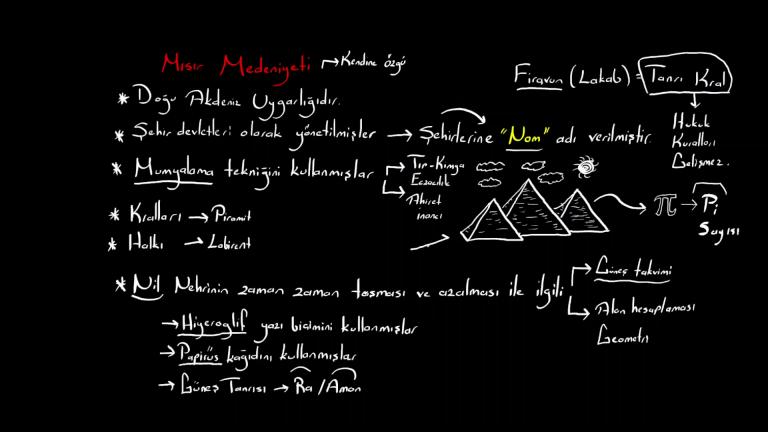 Mısır Medeniyeti → Kendine özgü
Firavun (Lakab) = Tanrı Kral
Hukuk
Kuralları
Gelişmez.
* Doğu Akdeniz Uygarlığıdır.
* Şehir devletleri olarak yönetilmişler → Şehirlerine "Nom" adı verilmiştir.
* Mumyalama tekniğini kullanmışlar → Tıp-Kimya
Eczacılık
→ Ahiret
inancı
* Kralları → Piramit
* Halkı → Labirent
π → Pi
Sayısı
* Nil Nehrinin zaman zaman taşması ve azalması ile ilgili → Güneş takvimi
→ Alan hesaplaması
Geometri
→ Hiyeroglif yazı biçimini kullanmışlar
→ Papirüs kağıdını kullanmışlar
→ Güneş Tanrısı → Ra / Amon